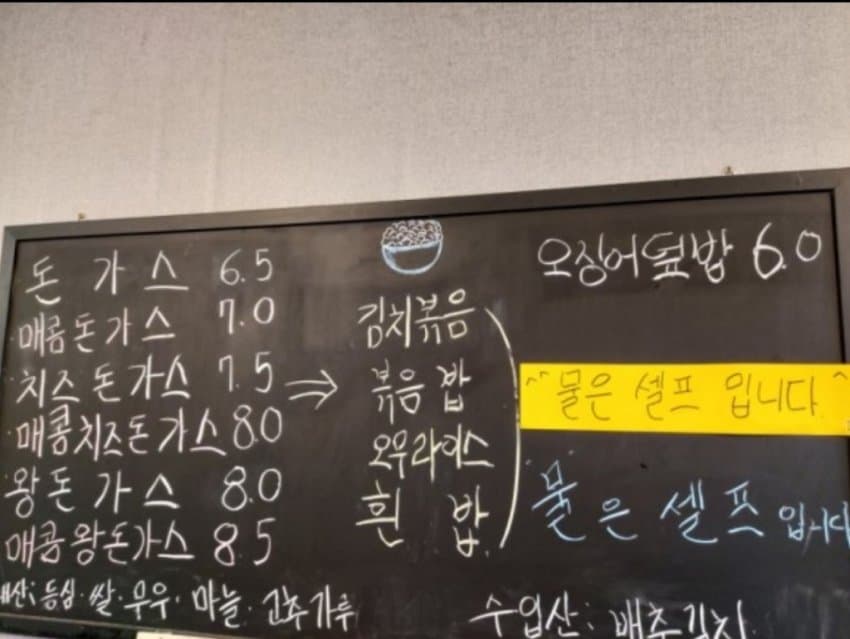 돈 가 스 6.5
매콤돈가스 7.0
치즈돈가스 7.5
매콤치즈돈가스 8.0
왕돈가스 8.0
매콤왕돈가스 8.5
⇒
김치볶음
볶음밥
오무라이스
흰 밥
오징어덮밥 6.0
^^ 물은 셀프 입니다 ^
물은 셀프 입니다
내산: 등심·쌀·무우·마늘·고추가루
수입산: 배추김치